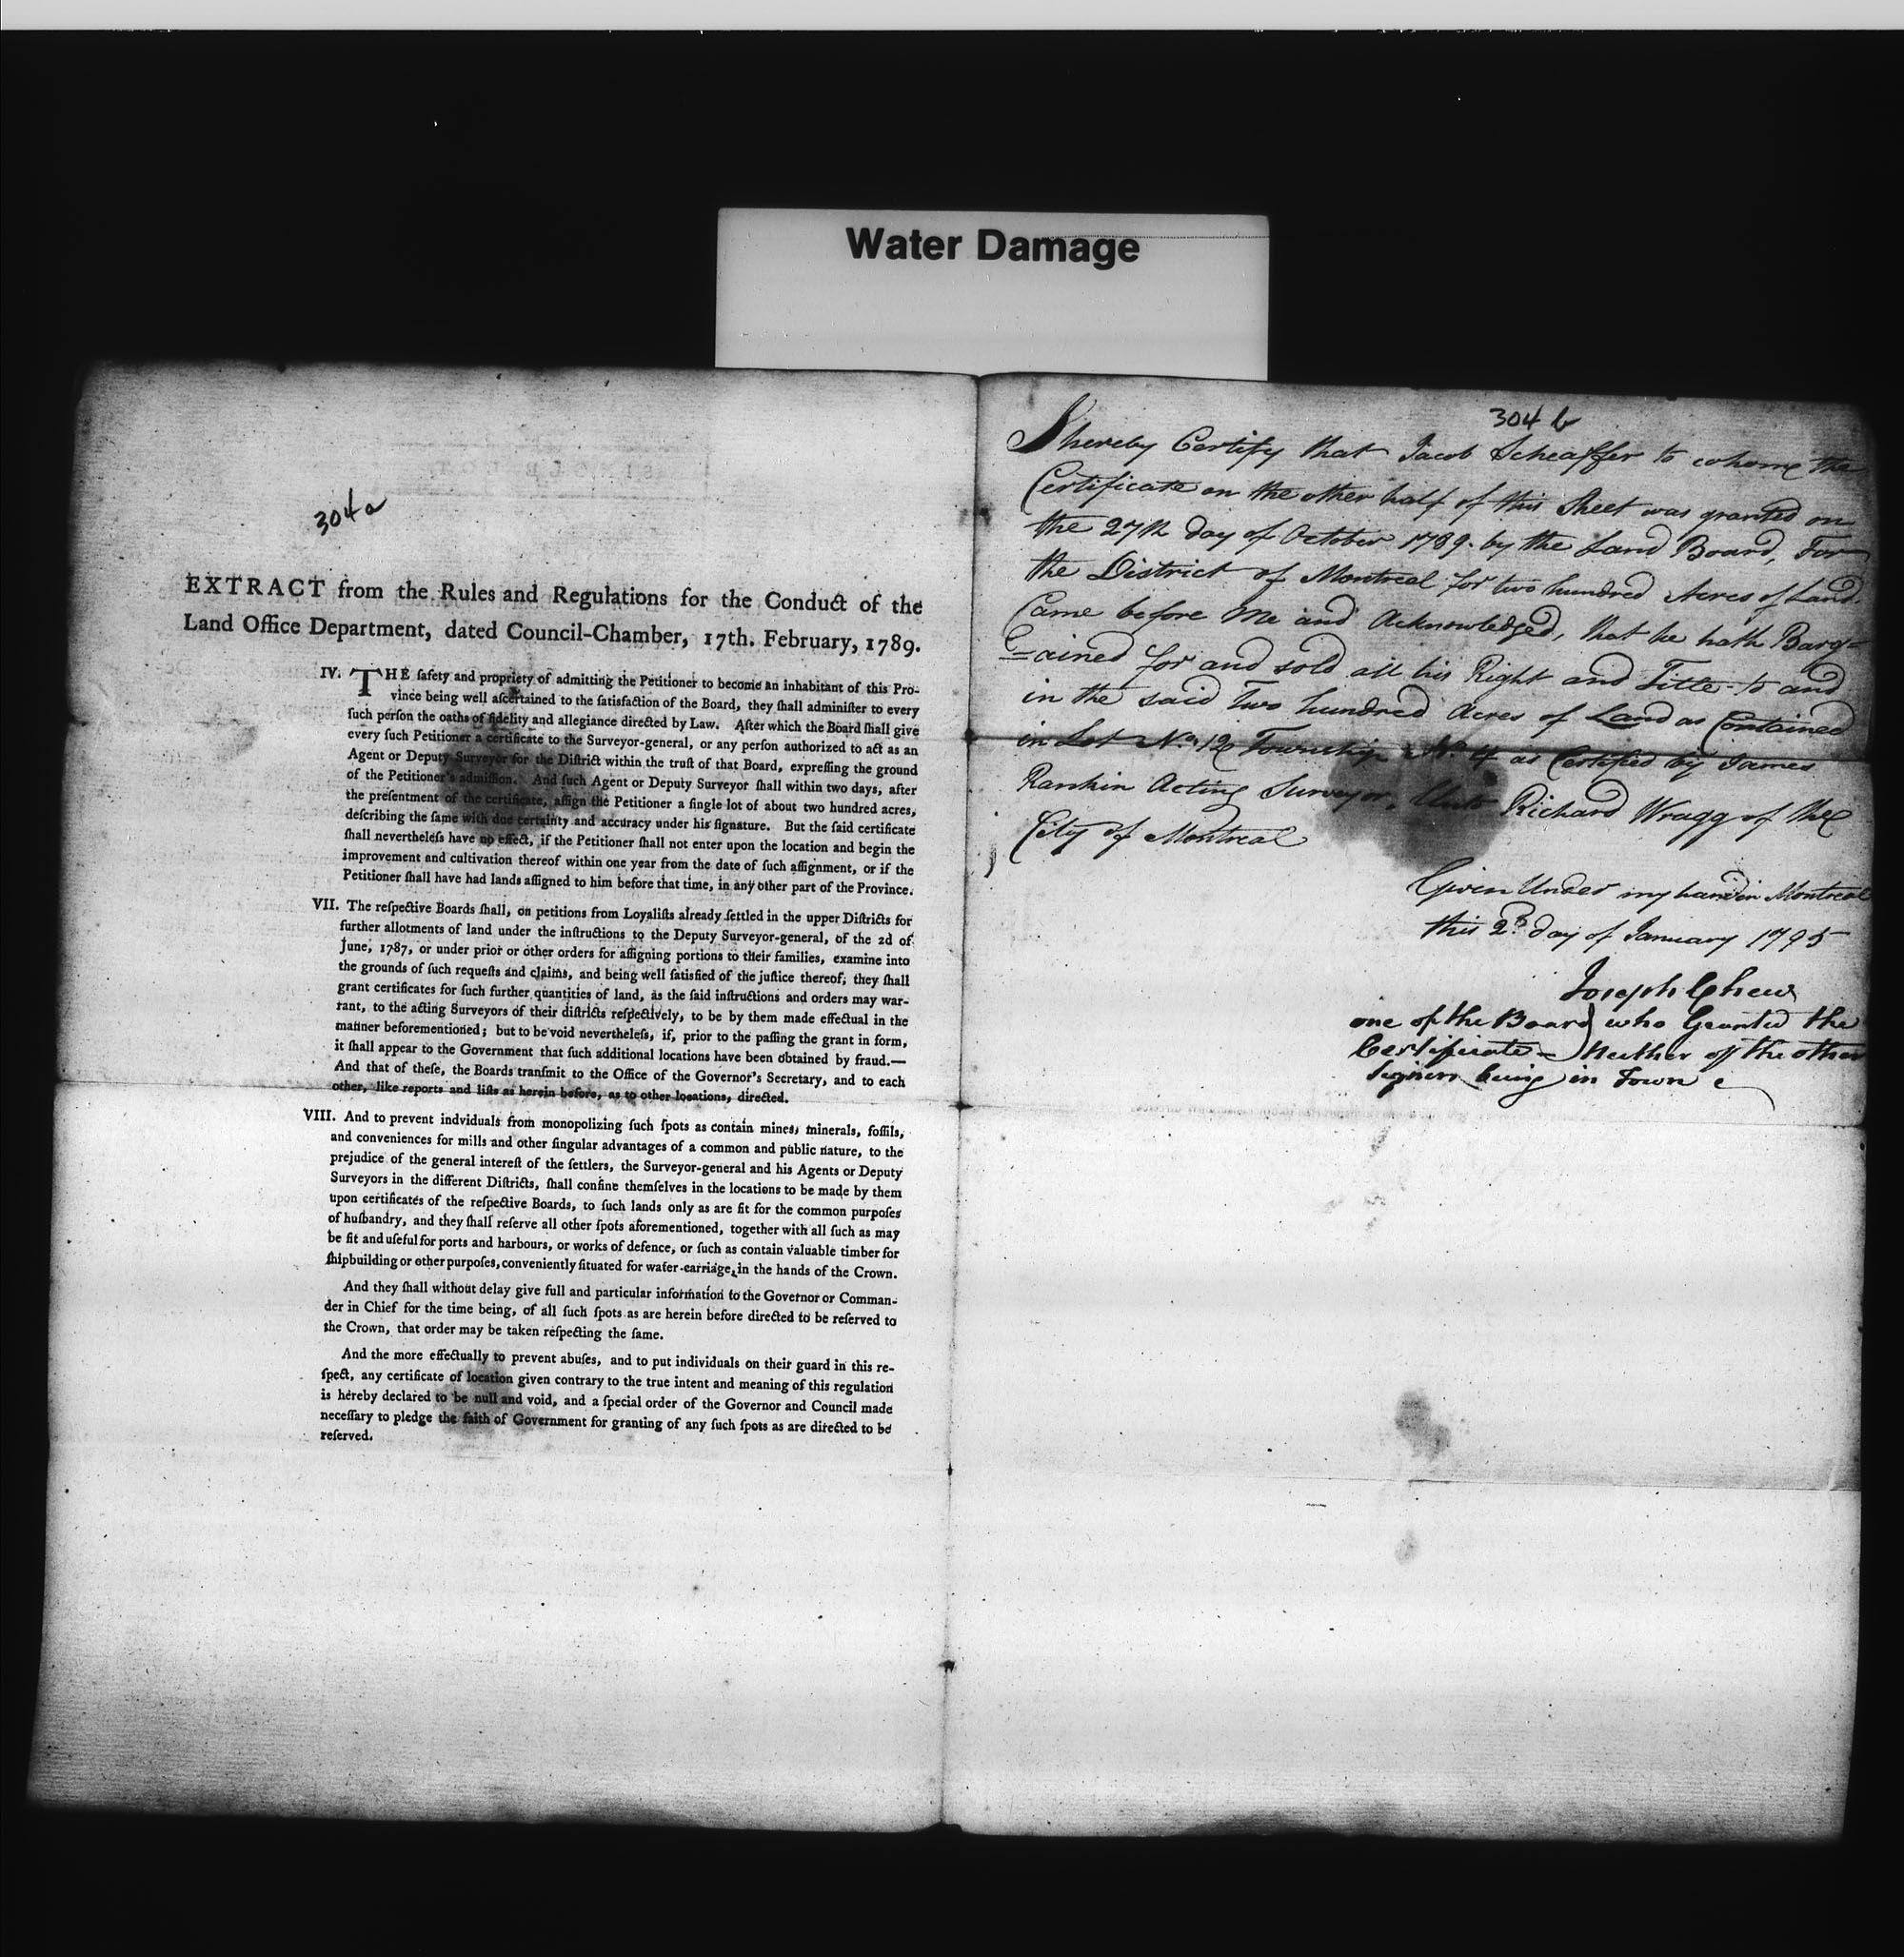 Water Damage
304a
EXTRACT from the Rules and Regulations for the Conduct of the
Land Office Department, dated Council-Chamber, 17th. February, 1789.
IV. THE ſafety and propriety of admitting the Petitioner to become an inhabitant of this Pro-
vince being well aſcertained to the ſatisfaction of the Board, they ſhall adminiſter to every
ſuch perſon the oaths of fidelity and allegiance directed by Law. After which the Board ſhall give
every ſuch Petitioner a certificate to the Surveyor-general, or any perſon authorized to act as an
Agent or Deputy Surveyor for the Diſtrict within the truſt of that Board, expreſſing the ground
of the Petitioner's admiſſion. And ſuch Agent or Deputy Surveyor ſhall within two days, after
the preſentment of the certificate, aſſign the Petitioner a ſingle lot of about two hundred acres,
deſcribing the ſame with due certainty and accuracy under his ſignature. But the ſaid certificate
ſhall nevertheleſs have no effect, if the Petitioner ſhall not enter upon the location and begin the
improvement and cultivation thereof within one year from the date of ſuch aſſignment, or if the
Petitioner ſhall have had lands aſſigned to him before that time, in any other part of the Province.
VII. The reſpective Boards ſhall, on petitions from Loyaliſts already ſettled in the upper Diſtricts for
further allotments of land under the inſtructions to the Deputy Surveyor-general, of the 2d of
June, 1787, or under prior or other orders for aſſigning portions to their families, examine into
the grounds of ſuch requeſts and claims, and being well ſatisfied of the juſtice thereof; they ſhall
grant certificates for ſuch further quantities of land, as the ſaid inſtructions and orders may war-
rant, to the acting Surveyors of their diſtricts reſpectively, to be by them made effectual in the
manner beforementioned; but to be void nevertheleſs, if, prior to the paſſing the grant in form,
it ſhall appear to the Government that ſuch additional locations have been obtained by fraud.—
And that of theſe, the Boards tranſmit to the Office of the Governor's Secretary, and to each
other, like reports and liſts as herein before, as to other locations, directed.
VIII. And to prevent indviduals from monopolizing ſuch ſpots as contain mines, minerals, foſſils,
and conveniences for mills and other ſingular advantages of a common and public nature, to the
prejudice of the general intereſt of the ſettlers, the Surveyor-general and his Agents or Deputy
Surveyors in the different Diſtricts, ſhall confine themſelves in the locations to be made by them
upon certificates of the reſpective Boards, to ſuch lands only as are fit for the common purpoſes
of huſbandry, and they ſhall reſerve all other ſpots aforementioned, together with all ſuch as may
be fit and uſeful for ports and harbours, or works of defence, or ſuch as contain valuable timber for
ſhipbuilding or other purpoſes, conveniently ſituated for water-carriage, in the hands of the Crown.
And they ſhall without delay give full and particular information to the Governor or Comman-
der in Chief for the time being, of all ſuch ſpots as are herein before directed to be reſerved to
the Crown, that order may be taken reſpecting the ſame.
And the more effectually to prevent abuſes, and to put individuals on their guard in this re-
ſpect, any certificate of location given contrary to the true intent and meaning of this regulation
is hereby declared to be null and void, and a ſpecial order of the Governor and Council made
neceſſary to pledge the faith of Government for granting of any ſuch ſpots as are directed to be
reſerved.
304 b
I hereby Certify that Jacob Scheaffer to whome the
Certificate on the other half of this Sheet was granted on
the 27th day of October 1789. by the Land Board, For
the District of Montreal for two hundred Acres of Land.
Came before Me and Acknowledged, that he hath Barg=
=ained for and sold all his Right and Title to and
in the said Two hundred Acres of Land as Contained
in Lot No. 12 Township No. 4 as Certified by James
Rankin Acting Surveyor, Unto Richard Wragg of the
City of Montreal
Given Under my hand in Montreal
this 2d. day of January 1795
Joseph Chew
one of the Board who Granted the
Certificate — Neither of the other
Signers being in Town